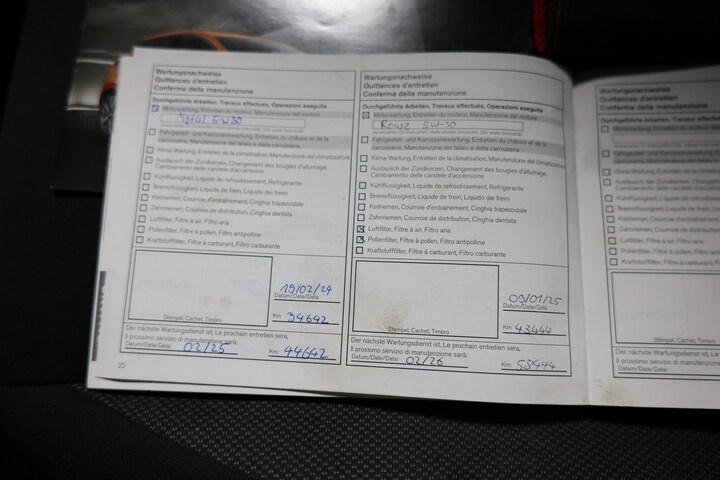 Wartungsnachweise
Quittances d'entretien
Conferma della manutenzione
Durchgeführte Arbeiten, Travaux effectués, Operazioni eseguite
Motorwartung, Entretien du moteur, Manutenzione del motore
Motul 5W30
Fahrgestell- und Karosseriewartung, Entretien du châssis et de la
carrosserie, Manutenzione del telaio e della carrozzeria
Klima-Wartung, Entretien de la climatisation, Manutenzione del climatizzatore
Austausch der Zündkerzen, Changement des bougies d'allumage,
Cambiamento delle candele d'accensione
Kühlflüssigkeit, Liquide de refroidissement, Refrigerante
Bremsflüssigkeit, Liquide de frein, Liquido dei freni
Keilriemen, Courroie d'entraînement, Cinghia trapezoidale
Zahnriemen, Courroie de distribution, Cinghia dentata
Luftfilter, Filtre à air, Filtro aria
Pollenfilter, Filtre à pollen, Filtro antipolline
Kraftstofffilter, Filtre à carburant, Filtro carburante
19/02/24
Datum/Date/Data
Km: 34642
Stempel, Cachet, Timbro
Der nächste Wartungsdienst ist, Le prochain entretien sera,
Il prossimo servizio di manutenzione sarà:
Datum/Date/Data: 02/25 Km: 44642
22
Wartungsnachweise
Quittances d'entretien
Conferma della manutenzione
Durchgeführte Arbeiten, Travaux effectués, Operazioni eseguite
Motorwartung, Entretien du moteur, Manutenzione del motore
5W-30
Fahrgestell- und Karosseriewartung, Entretien du châssis et de la
carrosserie, Manutenzione del telaio e della carrozzeria
Klima-Wartung, Entretien de la climatisation, Manutenzione del climatizzatore
Austausch der Zündkerzen, Changement des bougies d'allumage,
Cambiamento delle candele d'accensione
Kühlflüssigkeit, Liquide de refroidissement, Refrigerante
Bremsflüssigkeit, Liquide de frein, Liquido dei freni
Keilriemen, Courroie d'entraînement, Cinghia trapezoidale
Zahnriemen, Courroie de distribution, Cinghia dentata
Luftfilter, Filtre à air, Filtro aria
Pollenfilter, Filtre à pollen, Filtro antipolline
Kraftstofffilter, Filtre à carburant, Filtro carburante
09/01/25
Datum/Date/Data
Km: 43444
Stempel, Cachet, Timbro
Der nächste Wartungsdienst ist, Le prochain entretien sera,
Il prossimo servizio di manutenzione sarà:
Datum/Date/Data: 02/26 Km: 58444
Wartungsnachweise
Quittances d'entretien
Conferma della manutenzione
Durchgeführte Arbeiten, Travaux
Motorwartung, Entretien du
Fahrgestell- und Karosseriewartung
carrosserie, Manutenzione del
Klima-Wartung, Entretien de la
Austausch der Zündkerzen,
Cambiamento delle candele
Kühlflüssigkeit, Liquide de
Bremsflüssigkeit, Liquide de
Keilriemen, Courroie
Zahnriemen, Courroie de
Luftfilter, Filtre à air,
Pollenfilter, Filtre à pollen
Kraftstofffilter, Filtre à
Stempel, Cachet, Timbro
Der nächste Wartungsdienst ist,
Il prossimo servizio di manutenzione
Datum/Date/Data: